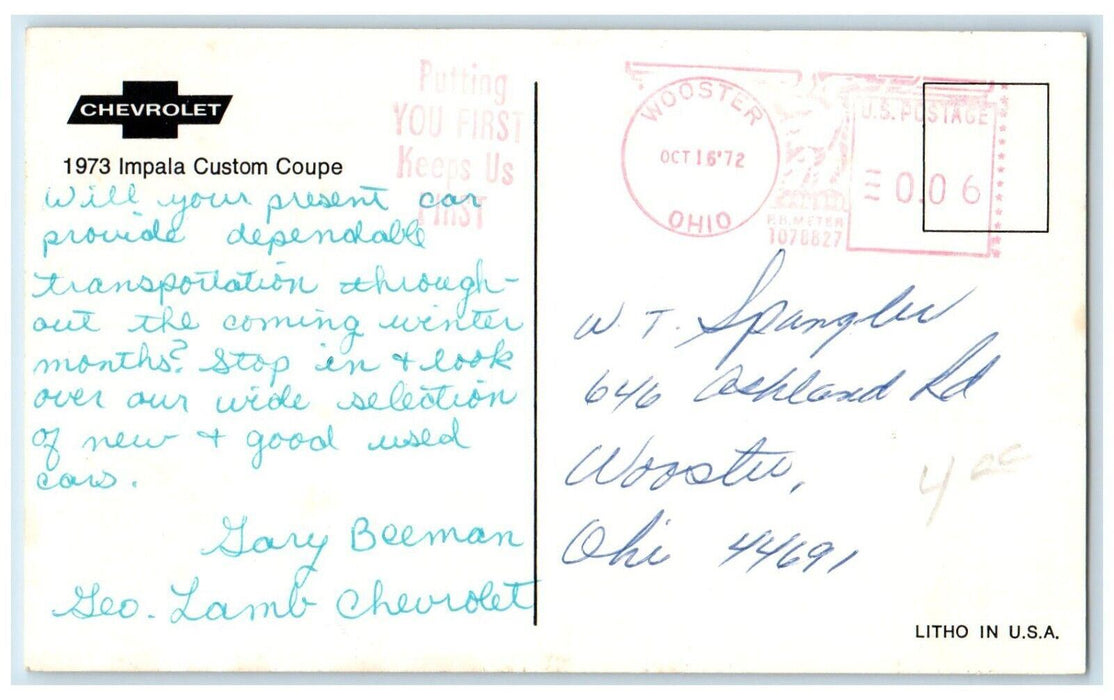 CHEVROLET
1973 Impala Custom Coupe
Will your present car
provide dependable
transportation through-
out the coming winter
months? Stop in + look
over our wide selection
of new + good used
cars.
Gary Beeman
Geo. Lamb Chevrolet
Putting
YOU FIRST
Keeps Us
FIRST
WOOSTER
OCT 16 '72
OHIO
P.B. METER
1078827
U.S. POSTAGE
0.06
W. T. Spangler
646 Ashland Rd
Wooster,
Ohio 44691
4 00
LITHO IN U.S.A.